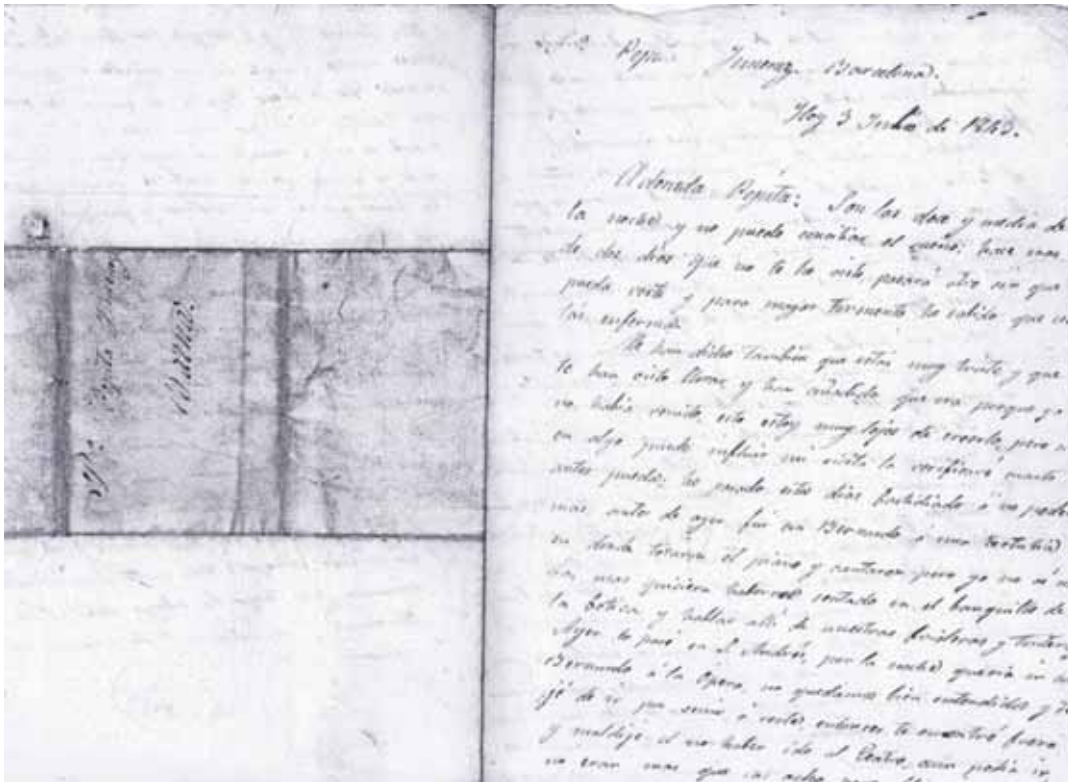 Barcelona.
Hoy 3 Julio de 1843.
Adorada Pepita: Son las doce y media de
la noche y no puedo conciliar el sueño; hace mas
de dos dias que no te he visto, pasará otro sin que
pueda verte y para mayor tormento he sabido que
enferma.
Me han dicho tambien que estas muy triste y que
te han visto llorar y han añadido que era porque yo
no habia venido, esto estoy muy lejos de creerlo, pero
en algo puede influir mi visita la verificaré cuanto
antes pueda; he pasado estos dias fastidiado á no poder
mas, antes de ayer fui con Bermudo á una tertulia
en donde tocaron el piano y cantaron pero yo no
mas quisiera haberme sentado en el banquillo de
la botica y hablar alli de nuestras
Ayer lo pasé en S. Andrés, por la noche queria ir
Bermudo á la Opera, no quedamos bien entendidos y
de ir por venir á verte, entonces te encontré fuera
y maldije el no haber ido al Teatro, aun podia ir
no eran mas que las ocho
Sta. Pepita
Mataró.